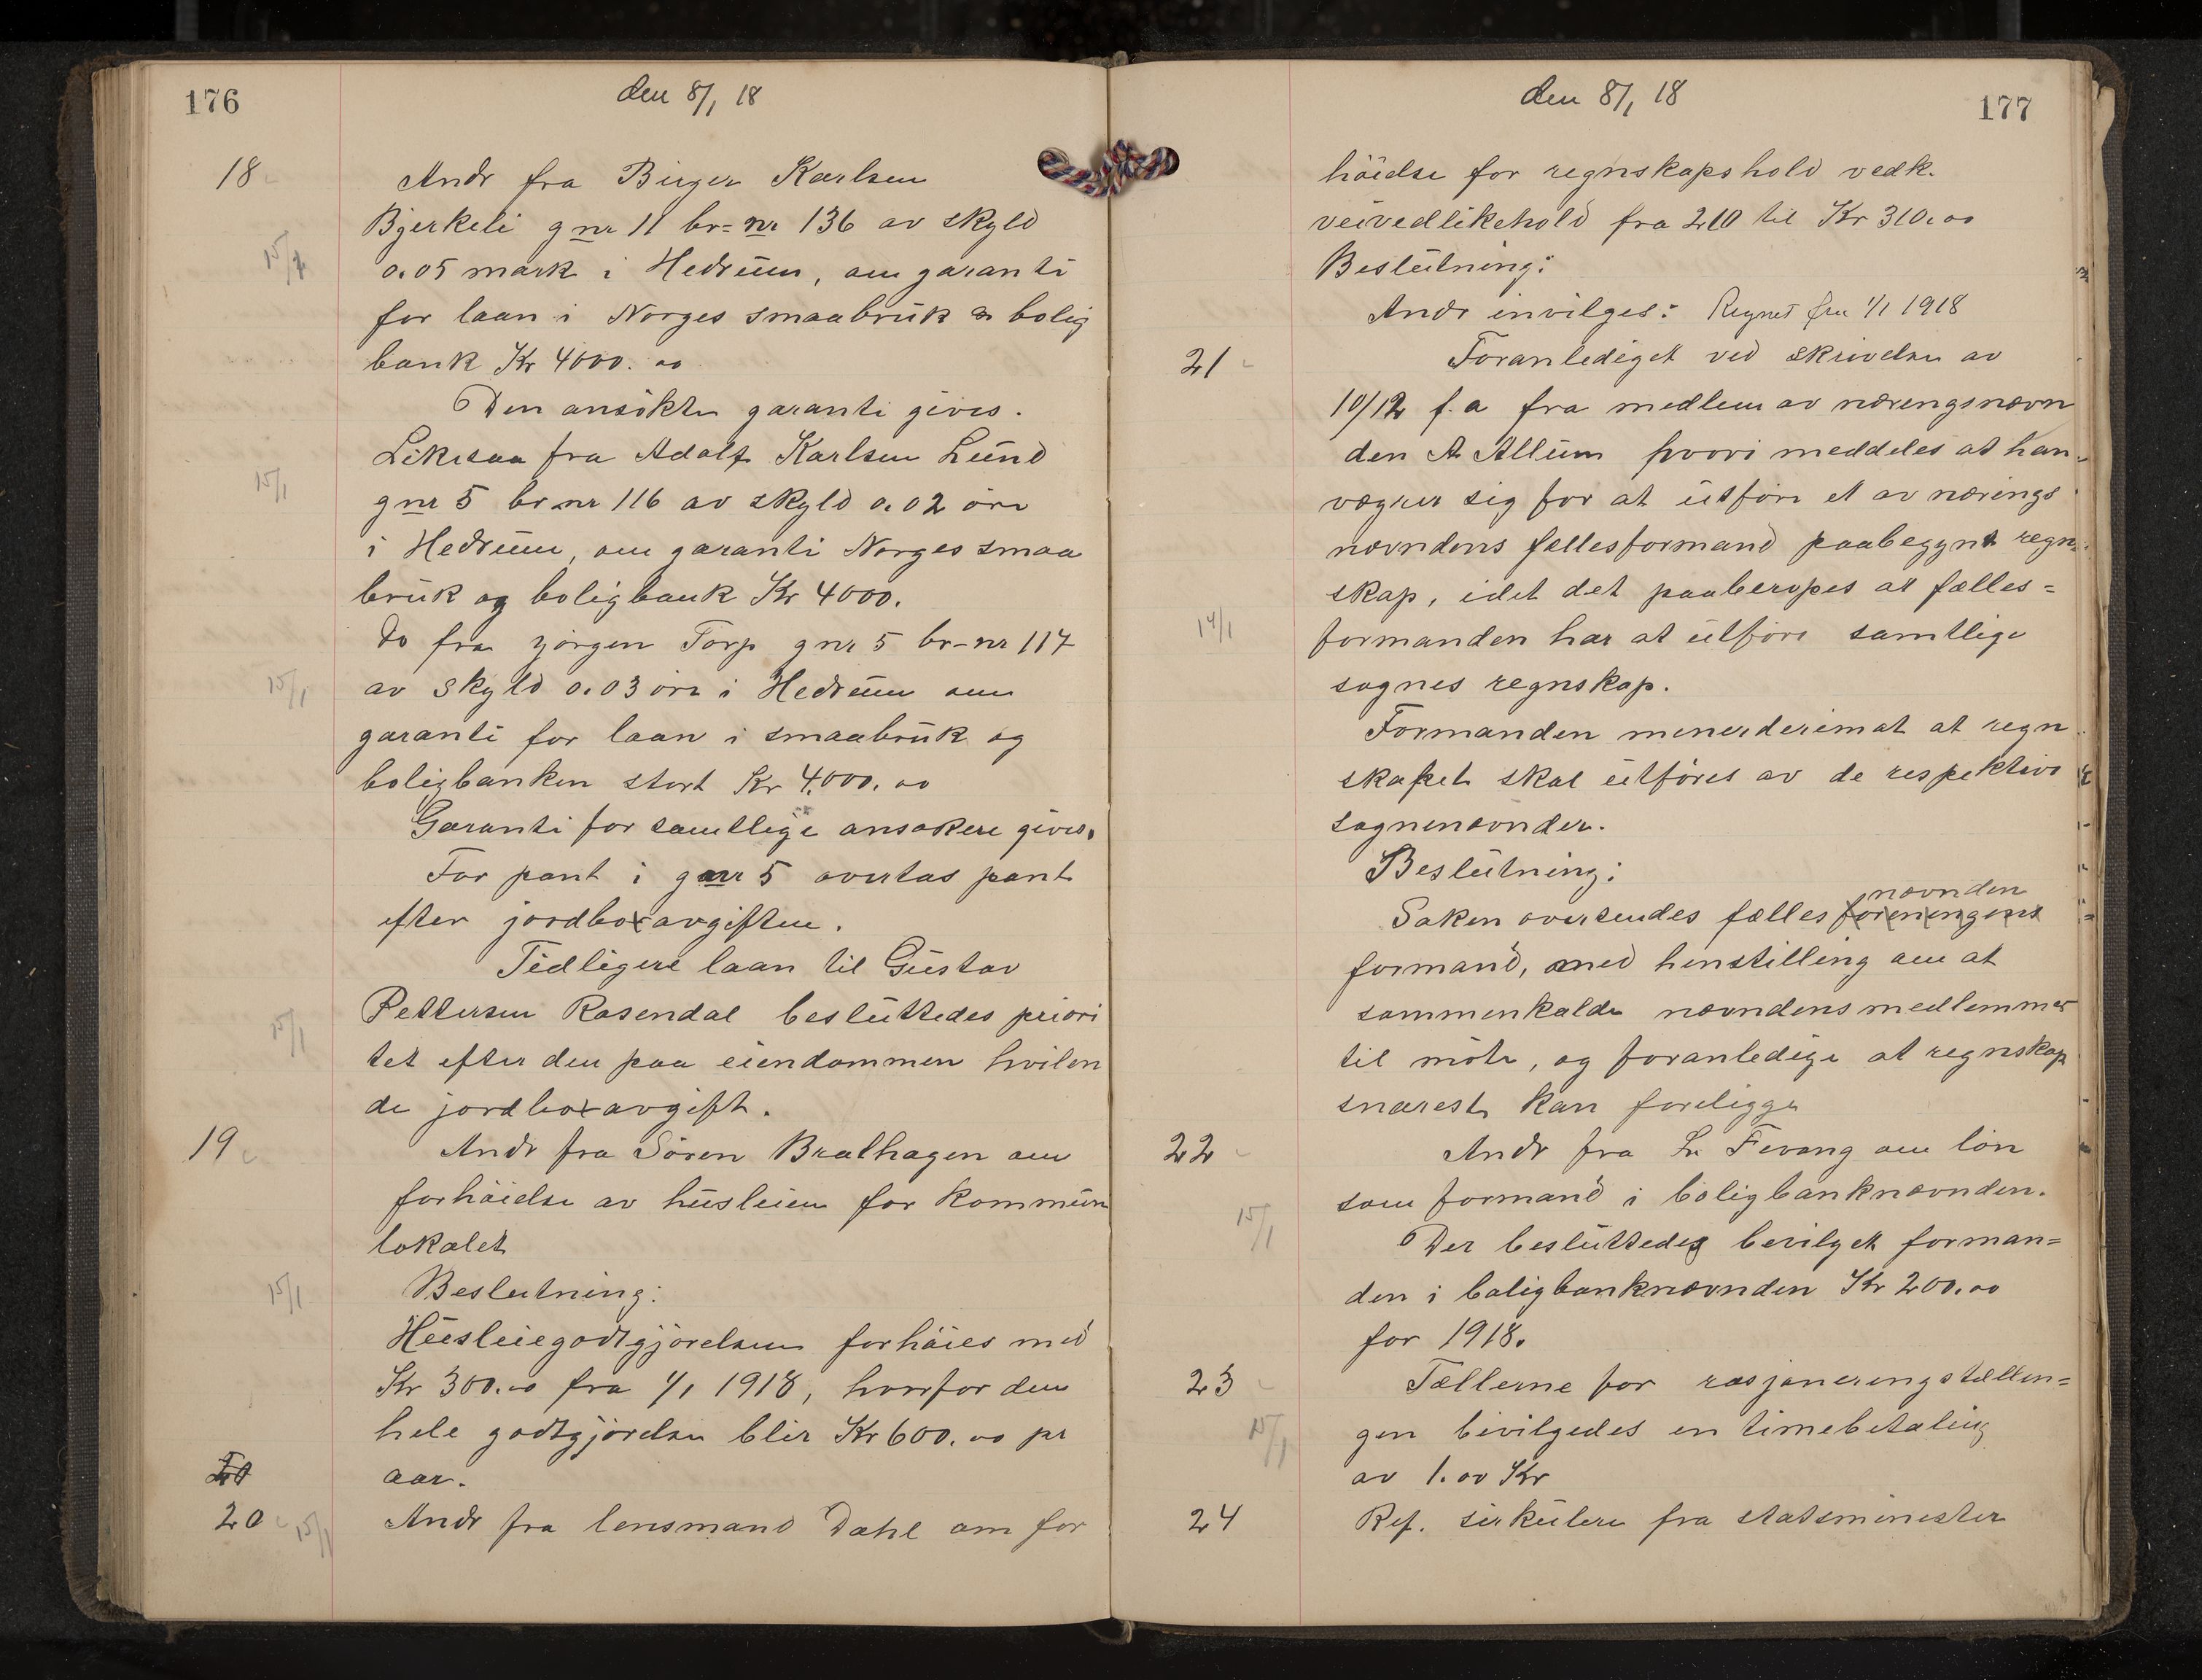 176
den 8/1 18
18
Andr fra Birger Karlsen
Bjerkeli gnr 11 br=nr 136 av skyld
15/1
0.05 mark i Hedrum, om garanti
for laan i Norges smaabruk & bolig
bank Kr 4000.00
Den ansökte garanti gives.
Likesaa fra Adolf Karlsen Lund
15/1
gnr 5 br.nr 116 av skyld 0.02 öre
i Hedrum, om garanti Norges smaa
bruk og boligbank Kr 4000.
Do fra Jörgen Torp gnr 5 br-nr 117
15/1
av skyld 0.03 öre i Hedrum om
garanti for laan i smaabruk og
boligbanken stort Kr 4.000.00
Garanti for samtlige ansøkere gives.
For pant i gnr 5 overtas pant
efter jordboravgiften.
Tidligere laan til Gustav
Pettersen Rosendal besluttedes priori
15/1
tet efter den paa eiendommen hvilen
de jordboravgift.
19
Andr fra Sören Bralhagen om
forhöielse av husleien for kommun
lokalet
15/1
Beslutning:
Husleiegodtgjörelsen forhöies med
Kr 300.00 fra 1/1 1918, hvorfor den
hele godtgjörelse blir Kr 600.00 pr
aar.
20
15/1
Andr fra lensmand Dahl om for
177
den 8/1 18
höielse for regnskapshold vedk.
veivedlikehold fra 210 til Kr 310.00
Beslutning:
Andr invilges: Regnet fra 1/1 1918
21
Foranlediget ved skrivelse av
10/12 f.a fra medlem av næringsnævn
den A Allum hvori meddeles at han
vægrer sig for at utföre et av nærings
nævndens fællesformand paabegynt regn-
skap, idet det paaberopes at fælles=
14/1
formanden har at utföre samtlige
sognes regnskap.
Formanden mener derimot at regn
skapet skal utföres av de respektive
sognenævnder.
Beslutning:
nævnden
Saken oversendes fælles foreningens
formand, med henstilling om at
sammenkalde nævndens medlemmer
til möte, og foranledige at regnskap
snarest kan foreligge
22
Andr fra Fevang om lön
som formand i boligbanknævnden.
15/1
Der besluttedes bevilget forman=
den i boligbanknævnden Kr 200.00
for 1918.
23
Tællerne for rasjoneringstællin=
15/1
gen bevilgedes en timebetaling
av 1.00 Kr
24
Ref. sirkulere fra statsminister